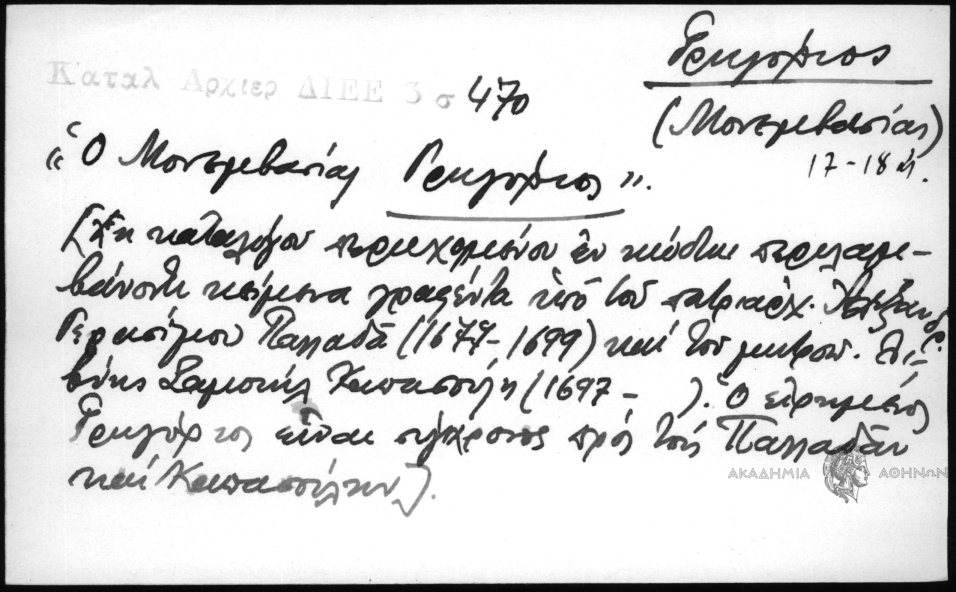 Γρηγόριος
Καταλ Αρχιερ ΔΙΕΕ 3 σ 470
(Μονεμβασίας)
17-18 αἰ.
"Ὁ Μονεμβασίας Γρηγόριος".
[Ἐκ καταλόγου περιεχομένου ἐν κώδικι περιλαμ-
βάνοντι κείμενα γραφέντα ὑπὸ τοῦ πατριάρχ. Ἀλεξανδρ.
Γερασίμου Παλλαδᾶ (1677-1699) καὶ τοῦ μητροπ. Λι-
βύης Σαμουὴλ Καπασούλη (1697 - ). Ὁ εἰρημένος
Γρηγόριος εἶναι σύγχρονος πρὸς τοὺς Παλλαδᾶν
καὶ Καπασούλην].
ΑΚΑΔΗΜΙΑ ΑΘΗΝΩΝ